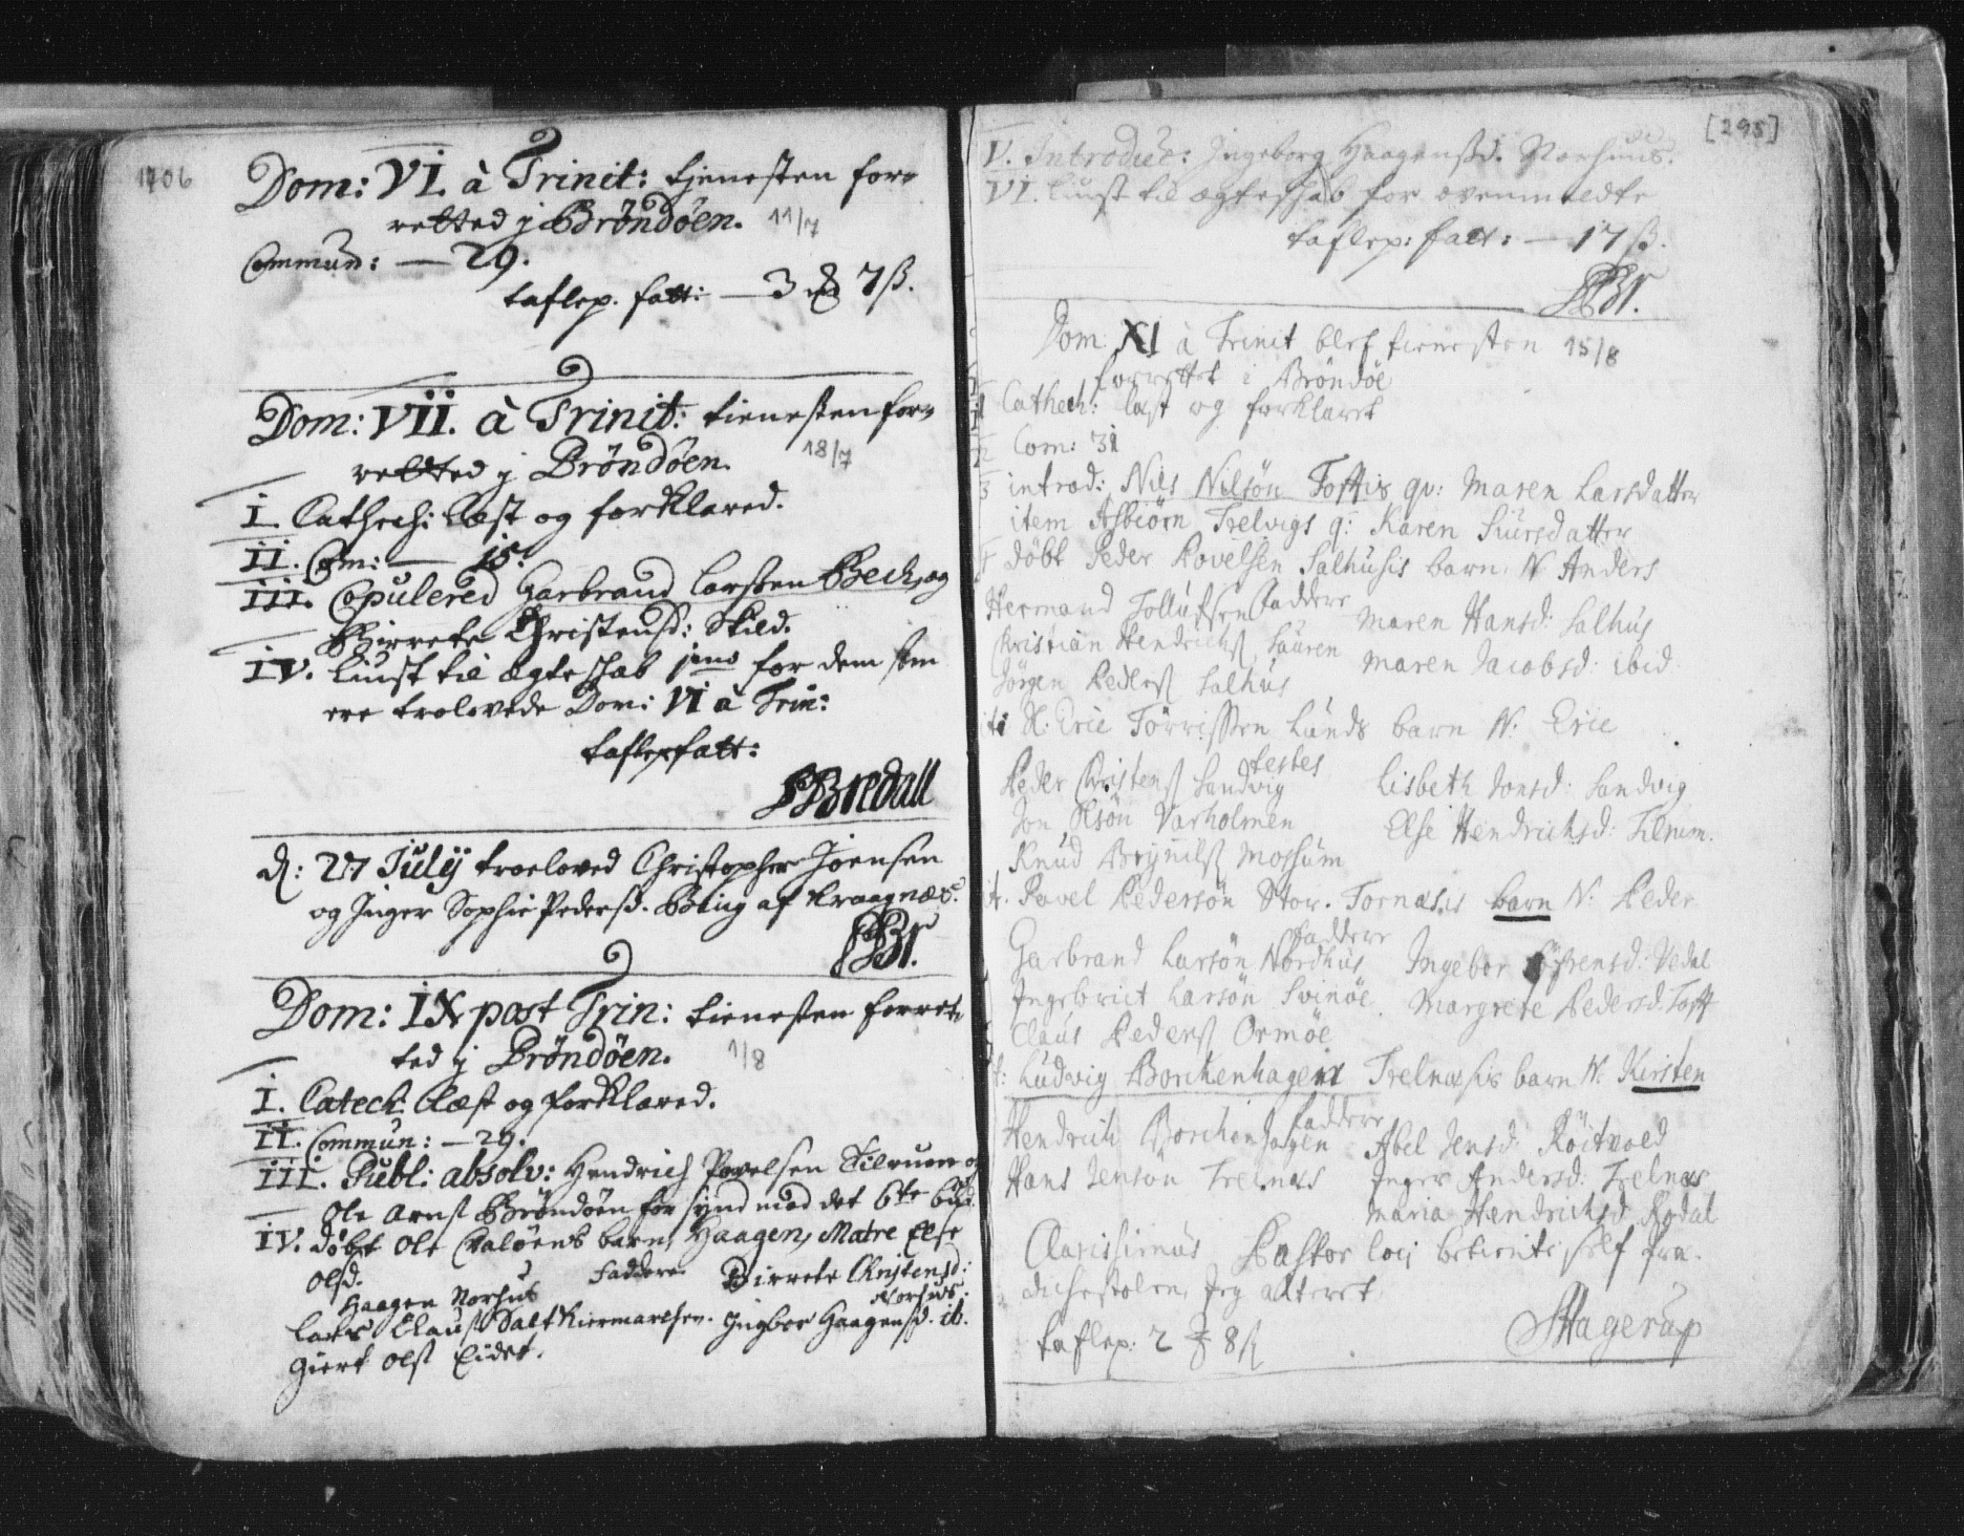 1706
Dom: VI. à Trinit: tjenesten for=
retted j Bröndöen. 11/7
Commun: — 29.
taflep. fatt: — 3 7 ß.
Dom: VII. à Trinit: tienesten for=
retted j Bröndöen. 18/7
I. Cathech: Læst og forklared.
II. Com: — 15.
III. Copulered Garbrand Larssen Beck, og
Birrete Christensd: Skild.
IV. Liust til Ægteskab for dem som
ere trolovede Dom: VI à Trin:
taflep fatt:
Bredall
d: 27 Julij troeloved Christopher Joensen
og Inger Sophie Pedersd. af Kraagnæs.
Dom: IX post Trin: tienesten forret=
ted j Bröndöen. 1/8
I. Catech. Læst og forklared.
II. Commun: — 29.
III. Publ: absolv: Hendrich Povelsen Tilrum og
Ole Arns Bröndöen for synd mod det 6te bud.
IV. döbt Ole barn, Haagen, Matre Else
Olsd.
Faddere
Haagen Norhus Birrete Christensd: Norhus.
Lars Claus Ingbor Haagensd. ib.
Giert Ols Eidet.
[295]
V. Introduc: Ingeborg Haagensd. Norhuus.
VI. Liust til ægteskab for ovenmeldte
taflep: fatt: — 17 ß.
Dom: XI à Trinit blef tienesten 15/8
forrettet i Bröndöe
1 Cathech: læst og forklaret
2 Com: 31
3 introd: Nils Nilsön Toftis qv: Maren Larsdatter
item Asbiörn Trelvigs q: Karen Siursdatter
döbt Peder Povelsen Salhusis barn N Anders
Faddere
Hermand Tollufsen Maren Hansd: Salhus
Christian Hendrichs Maren Jacobsd: ibid.
Jörgen Peders Salhus
it: Eric Törrissen Lunds barn N: Eric
testes
Peder Christens Sandvig Lisbeth Jonsd: Sandvig
Jon Olsön Varholmen Else Hendrichsd: Tilrum.
Knud Moshum
it. Povel Pedersön Stor. Tornæsis barn N: Peder
Faddere
Garbrand Larsön Nordhus Ingebor Vedal
Ingebrict Larsön Svinöe Margrete Pedersd. Toft
Claus Peders Ormöe
it: Ludvig Borchenhagen Trelnæsis barn N. Kirsten
Faddere
Hendrich Borchenhagen Abel Jensd: Röitvold
Hans Jensön Trelnæs Inger Andersd: Trelnæs
Maria Hendrichsd
Clarissimus Pastor loci betiente self præ-
dichestolen, Jeg alteret.
taflep: 2 8 ß
Hagerup